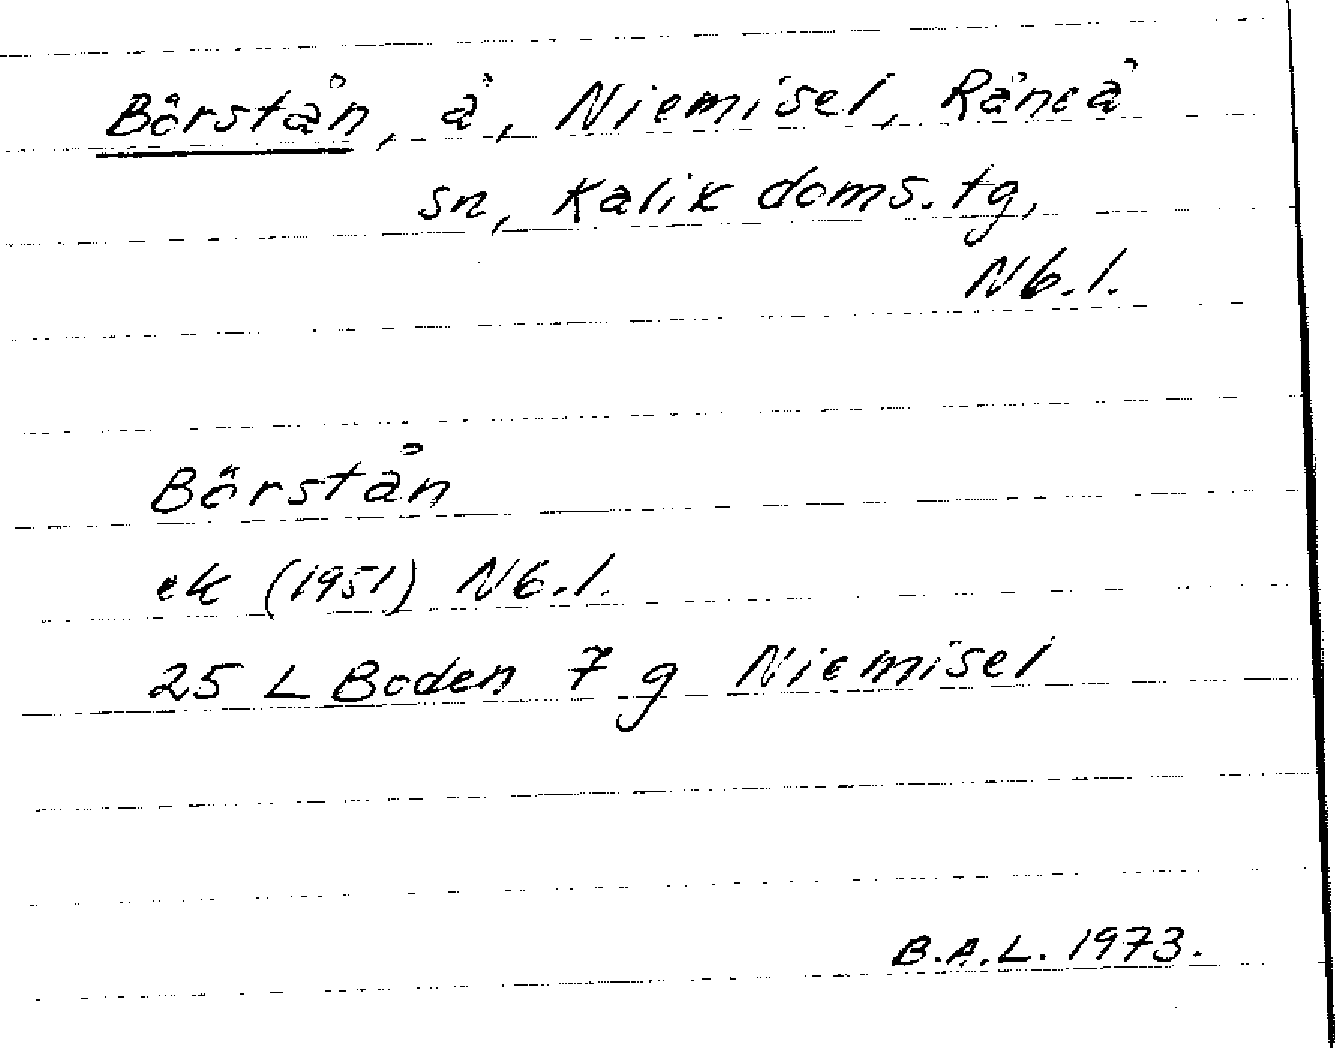 Börstån, å, Niemisel, Råneå
sn, Kalix doms. tg,
Nb.l.
Börstån
ek (1951) Nb.l.
25 L Boden 7 g Niemisel
B.A.L. 1973.